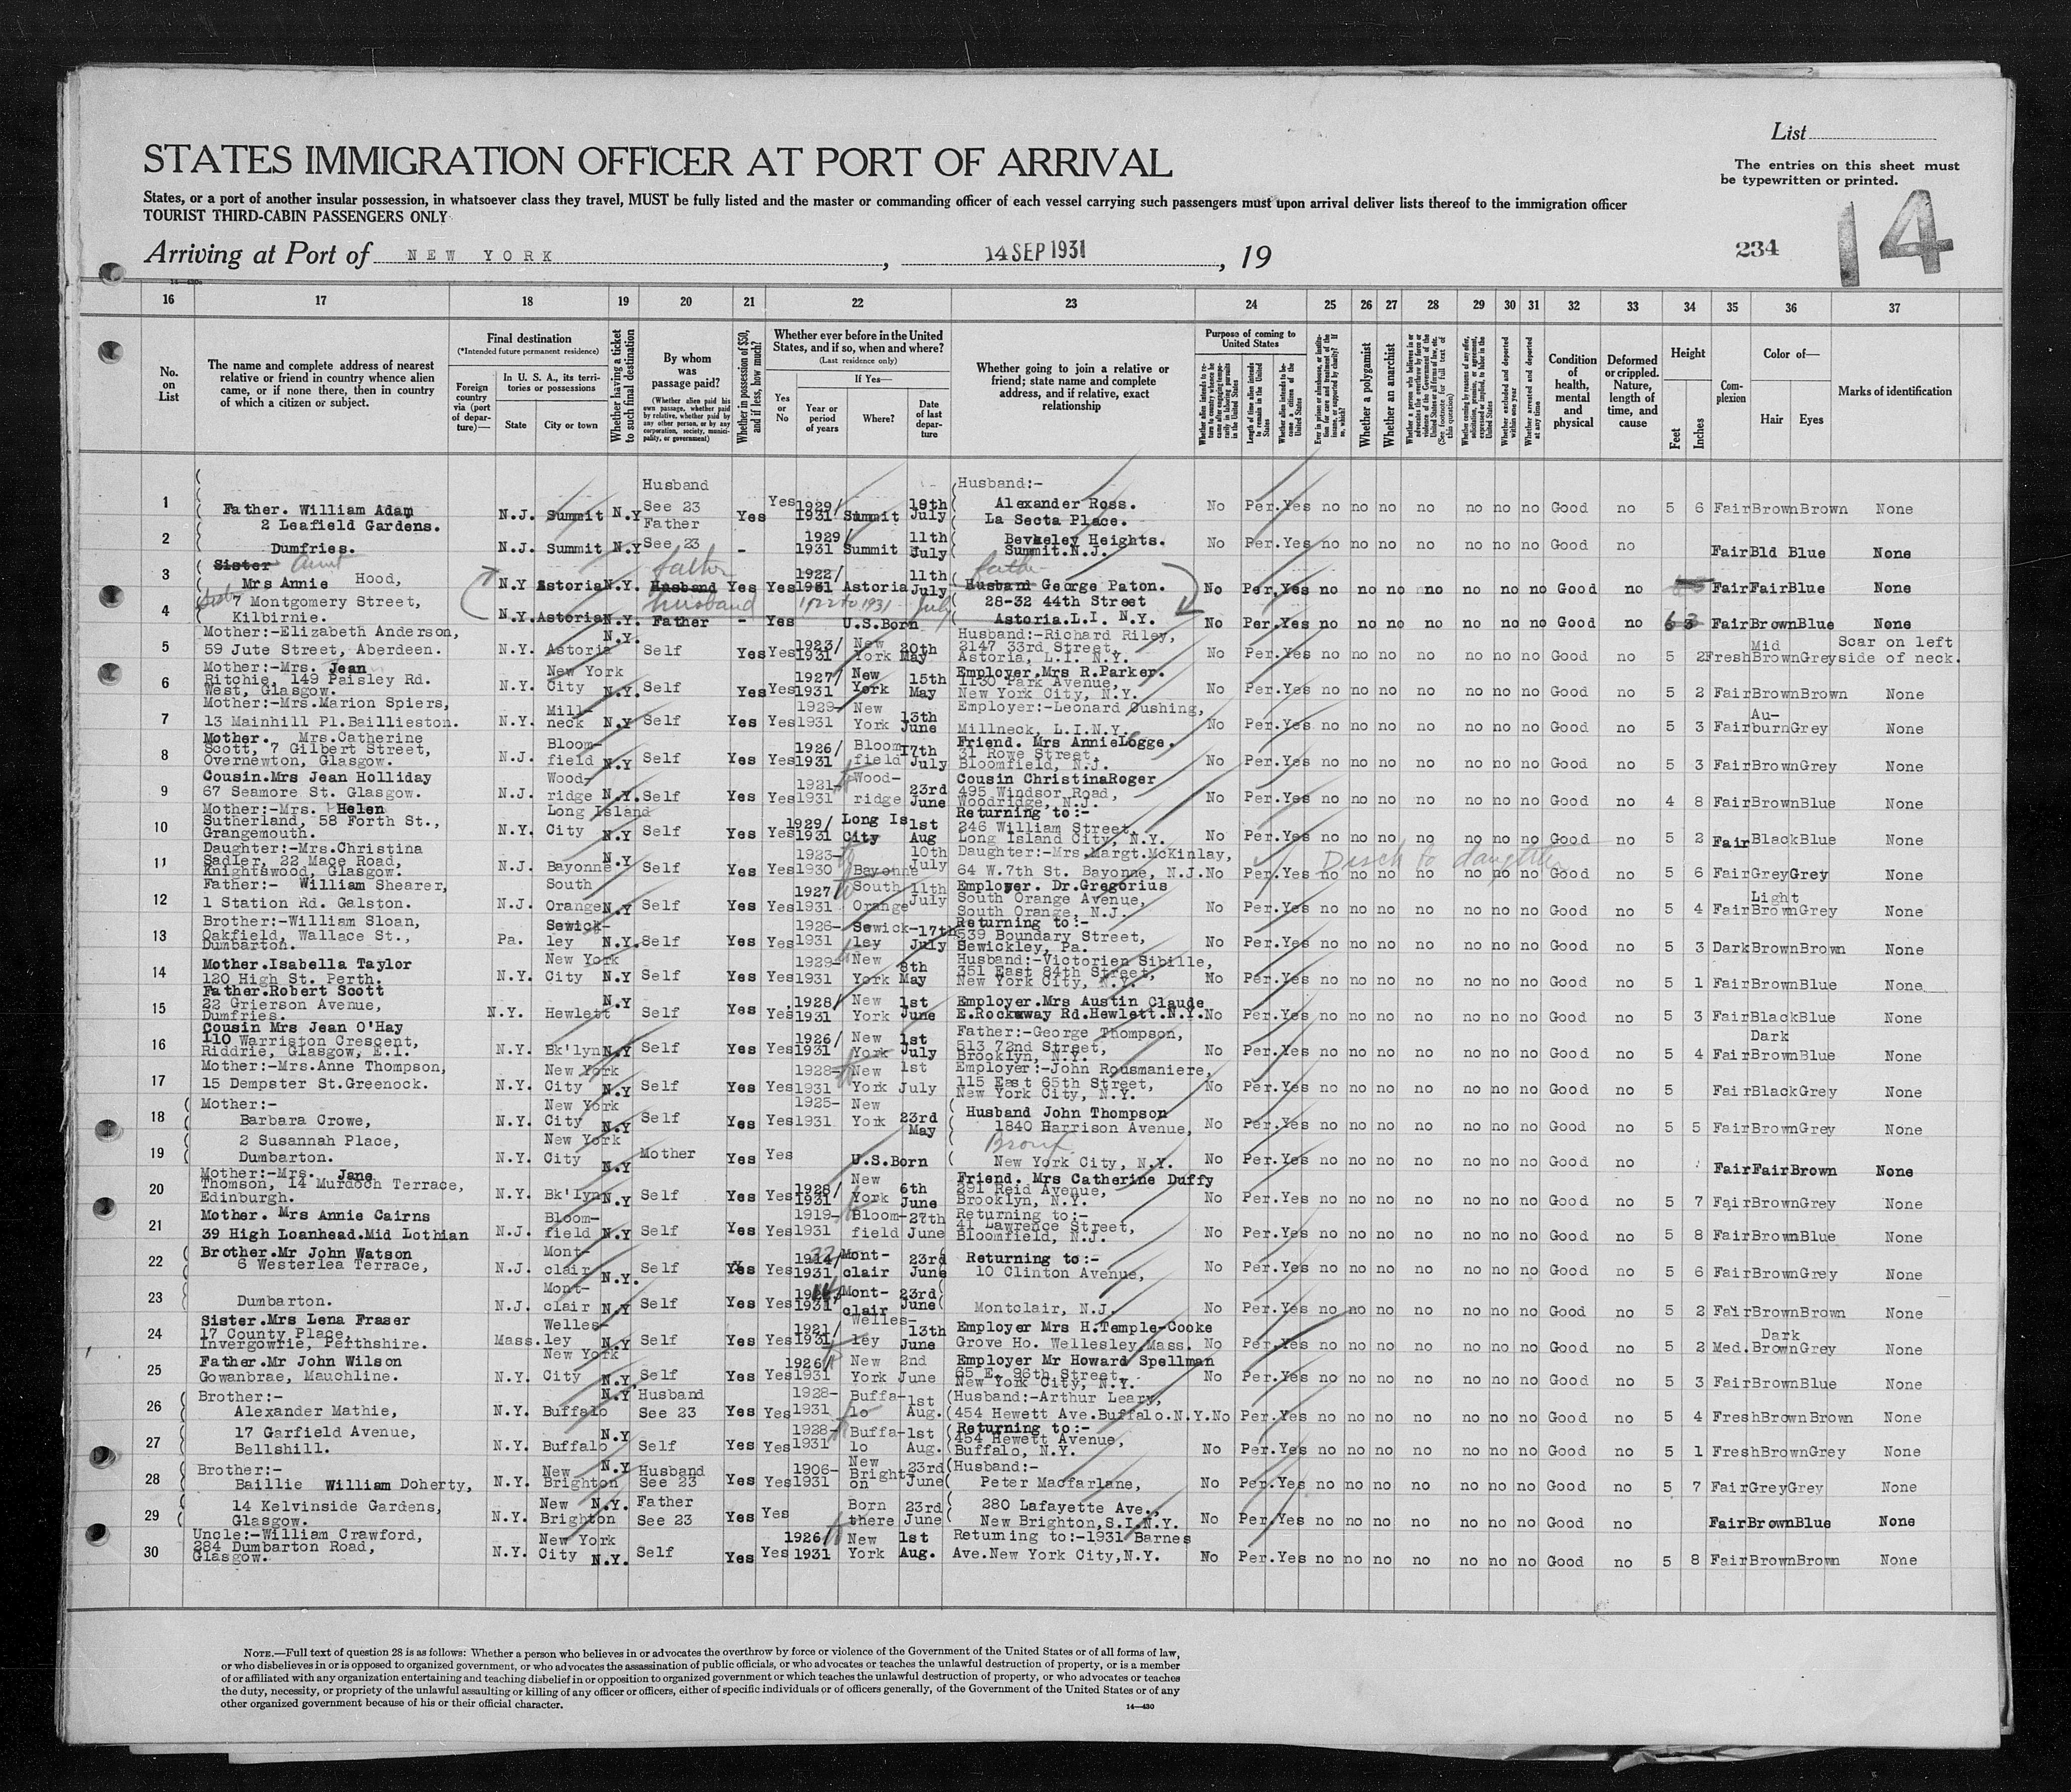 List
STATES IMMIGRATION OFFICER AT PORT OF ARRIVAL
The entries on this sheet must
be typewritten or printed.
States, or a port of another insular possession, in whatsoever class they travel, MUST be fully listed and the master or commanding officer of each vessel carrying such passengers must upon arrival deliver lists thereof to the immigration officer
TOURIST THIRD-CABIN PASSENGERS ONLY
14
Arriving at Port of NEW YORK , 14 SEP 1931 , 19
234
14—430c
16 17 18 19 20 21 22 23 24 25 26 27 28 29 30 31 32 33 34 35 36 37
No. on List
The name and complete address of nearest relative or friend in country whence alien came, or if none there, then in country of which a citizen or subject.
Final destination
(*Intended future permanent residence)
Foreign country via (port of departure)—
In U. S. A., its territories or possessions
State
City or town
Whether having a ticket to such final destination
By whom was passage paid?
(Whether alien paid his own passage, whether paid by relative, whether paid by any other person, or by any corporation, society, municipality, or government)
Whether in possession of $50, and if less, how much?
Whether ever before in the United States, and if so, when and where?
(Last residence only)
Yes or No
If Yes—
Year or period of years
Where?
Date of last departure
Whether going to join a relative or friend; state name and complete address, and if relative, exact relationship
Purpose of coming to United States
Length of time alien intends to remain in the United States
Whether alien intends to become a citizen of the United States
Whether a polygamist
Whether an anarchist
Whether excluded and deported within one year
Whether arrested and deported at any time
Condition of health, mental and physical
Deformed or crippled. Nature, length of time, and cause
Height
Feet
Inches
Complexion
Color of—
Hair
Eyes
Marks of identification
1 Father. William Adam N.J. Summit N.Y Husband See 23 Yes Yes 1929/1931 Summit 18th July Husband:- Alexander Ross. La Secta Place. No Per. Yes no no no no no no no Good no 5 6 Fair Brown Brown None
2 2 Leafield Gardens. Dumfries. N.J. Summit N.Y Father See 23 - 1929/1931 Summit 11th July Bevkeley Heights. Summit.N.J. No Per. Yes no no no no no no no Good no Fair Bld Blue None
3 Sister Aunt Mrs Annie Hood, N.Y Astoria N.Y. Husband father Yes Yes 1922/1931 Astoria 11th July Husband father George Paton. No Per. Yes no no no no no no no Good no Fair Fair Blue None
4 7 Montgomery Street, Kilbirnie. N.Y. Astoria N.Y. husband Father - Yes 1922 to 1931 U.S.Born July 28-32 44th Street Astoria.L.I. N.Y. No Per. Yes no no no no no no no Good no Fair Brown Blue None
5 Mother:-Elizabeth Anderson, 59 Jute Street, Aberdeen. N.Y. Astoria N.Y. Self Yes Yes 1923/1931 New York 20th May Husband:-Richard Riley, 2147 33rd Street, Astoria, L.I. N.Y. No Per. Yes no no no no no no no Good no 5 2 Fresh Mid Brown Grey Scar on left side of neck.
6 Mother:-Mrs. Jean Ritchie, 149 Paisley Rd. West, Glasgow. N.Y. New York City N.Y. Self Yes Yes 1927/1931 New York 15th May Employer.Mrs R.Parker. 1130 Park Avenue, New York City, N.Y. No Per. Yes no no no no no no no Good no 5 2 Fair Brown Brown None
7 Mother:-Mrs.Marion Spiers, 13 Mainhill Pl.Baillieston. N.Y. Mill-neck N.Y Self Yes Yes 1929-1931 New York 13th June Employer:-Leonard Cushing, Millneck, L.I.N.Y. No Per. Yes no no no no no no no Good no 5 3 Fair Au-burn Grey None
8 Mother. Mrs.Catherine Scott, 7 Gilbert Street, Overnewton, Glasgow. N.J. Bloom-field N.Y Self Yes Yes 1926/1931 Bloom field 17th July Friend. Mrs Annie Logge. 31 Rowe Street, Bloomfield, N.J. No Per. Yes no no no no no no no Good no 5 3 Fair Brown Grey None
9 Cousin.Mrs Jean Holliday 67 Seamore St. Glasgow. N.J. Wood-ridge N.Y. Self Yes Yes 1921-1931 Wood-ridge 23rd June Cousin ChristinaRoger 495 Windsor Road, Woodridge, N.J. No Per. Yes no no no no no no no Good no 4 8 Fair Brown Blue None
10 Mother:-Mrs. Helen Sutherland, 58 Forth St., Grangemouth. N.Y. Long Island City N.Y Self Yes Yes 1929/1931 Long Is City 1st Aug Returning to:- 246 William Street, Long Island City, N.Y. No Per. Yes no no no no no no no Good no 5 2 Fair Black Blue None
11 Daughter:-Mrs.Christina Sadler, 22 Mace Road, Knightswood, Glasgow. N.J. Bayonne N.Y Self Yes Yes 1923-1930 Bayonne 10th July Daughter:-Mrs.Margt.McKinlay, 64 W.7th St. Bayonne, N.J. No Per. Yes Disch to daughter no no no no no no no Good no 5 6 Fair Grey Grey None
12 Father:- William Shearer, 1 Station Rd. Galston. N.J. South Orange N.Y Self Yes Yes 1927/1931 South Orange 11th July Employer. Dr.Gregorius South Orange Avenue, South Orange, N.J. No Per. Yes no no no no no no no Good no 5 4 Fair Light Brown Grey None
13 Brother:-William Sloan, Oakfield, Wallace St., Dumbarton. Pa. Sewick-ley N.Y. Self Yes Yes 1926-1931 Sewick-ley 17th July Returning to:- 539 Boundary Street, Sewickley, Pa. No Per. Yes no no no no no no no Good no 5 3 Dark Brown Brown None
14 Mother.Isabella Taylor 120 High St. Perth. N.Y. New York City N.Y Self Yes Yes 1929-1931 New York 8th May Husband:-Victorien Sibille, 351 East 84th Street, New York City, N.Y. No Per. Yes no no no no no no no Good no 5 1 Fair Brown Blue None
15 Father.Robert Scott 22 Grierson Avenue, Dumfries. N.Y. Hewlett N.Y Self Yes Yes 1928/1931 New York 1st June Employer.Mrs Austin Claude E.Rockaway Rd.Hewlett.N.Y. No Per. Yes no no no no no no no Good no 5 3 Fair Black Blue None
16 Cousin Mrs Jean O'Hay 110 Warriston Crescent, Riddrie, Glasgow, E.1. N.Y. Bk'lyn N.Y Self Yes Yes 1926/1931 New York 1st July Father:-George Thompson, 513 72nd Street, Brooklyn, N.Y. No Per. Yes no no no no no no no Good no 5 4 Fair Dark Brown Blue None
17 Mother:-Mrs.Anne Thompson, 15 Dempster St.Greenock. N.Y. New York City N.Y Self Yes Yes 1928-1931 New York 1st July Employer:-John Rousmaniere, 115 East 65th Street, New York City, N.Y. No Per. Yes no no no no no no no Good no 5 Fair Black Grey None
18 Mother:- Barbara Crowe, N.Y. New York City N.Y Self Yes Yes 1925-1931 New York 23rd May Husband John Thompson 1840 Harrison Avenue, No Per. Yes no no no no no no no Good no 5 5 Fair Brown Grey None
19 2 Susannah Place, Dumbarton. N.Y. New York City N.Y Mother Yes Yes U.S.Born Bronx New York City, N.Y. No Per. Yes no no no no no no no Good no Fair Fair Brown None
20 Mother:-Mrs. Jane Thomson, 14 Murdoch Terrace, Edinburgh. N.Y. Bk'lyn N.Y Self Yes Yes 1928/1931 New York 6th June Friend. Mrs Catherine Duffy 291 Reid Avenue, Brooklyn, N.Y. No Per. Yes no no no no no no no Good no 5 7 Fair Brown Grey None
21 Mother. Mrs Annie Cairns 39 High Loanhead.Mid Lothian N.J. Bloom-field N.Y Self Yes Yes 1919-1931 Bloom-field 27th June Returning to:- 41 Lawrence Street, Bloomfield, N.J. No Per. Yes no no no no no no no Good no 5 8 Fair Brown Blue None
22 Brother.Mr John Watson 6 Westerlea Terrace, N.J. Mont-clair N.Y. Self Yes Yes 1914/1931 Mont-clair 23rd June Returning to:- 10 Clinton Avenue, No Per. Yes no no no no no no no Good no 5 6 Fair Brown Grey None
23 Dumbarton. N.J. Mont-clair N.Y Self Yes Yes 1931 Mont-clair 23rd June Montclair, N.J. No Per. Yes no no no no no no no Good no 5 2 Fair Brown Brown None
24 Sister.Mrs Lena Fraser 17 County Place, Invergowrie, Perthshire. Mass. Welles-ley N.Y Self Yes Yes 1921/1931 Welles-ley 13th June Employer Mrs H.Temple-Cooke Grove Ho. Wellesley Mass. No Per. Yes no no no no no no no Good no 5 2 Med. Dark Brown Grey None
25 Father.Mr John Wilson Gowanbrae, Mauchline. N.Y. New York City N.Y. Self Yes Yes 1926/1931 New York 2nd June Employer Mr Howard Spellman 65 E. 96th Street, New York City, N.Y. No Per. Yes no no no no no no no Good no 5 3 Fair Brown Blue None
26 Brother:- Alexander Mathie, N.Y. Buffalo N.Y. Husband See 23 Yes Yes 1928-1931 Buffa-lo 1st Aug. Husband:-Arthur Leary, 454 Hewett Ave.Buffalo.N.Y. No Per. Yes no no no no no no no Good no 5 4 Fresh Brown Brown None
27 17 Garfield Avenue, Bellshill. N.Y. Buffalo N.Y Self Yes Yes 1928-1931 Buffa-lo 1st Aug. Returning to:- 454 Hewett Avenue, Buffalo, N.Y. No Per. Yes no no no no no no no Good no 5 1 Fresh Brown Grey None
28 Brother:- Baillie William Doherty, N.Y. New Brighton N.Y Husband See 23 Yes Yes 1906-1931 New Bright-on 23rd June Husband:- Peter Macfarlane, No Per. Yes no no no no no no no Good no 5 7 Fair Grey Grey None
29 14 Kelvinside Gardens, Glasgow. N.Y. New Brighton N.Y. Father See 23 Yes Yes Born there 23rd June 280 Lafayette Ave., New Brighton,S.I.N.Y. No Per. Yes no no no no no no no Good no Fair Brown Blue None
30 Uncle:-William Crawford, 284 Dumbarton Road, Glasgow. N.Y. New York City N.Y. Self Yes Yes 1926/1931 New York 1st Aug. Returning to:-1931 Barnes Ave.New York City,N.Y. No Per. Yes no no no no no no no Good no 5 8 Fair Brown Brown None
NOTE.—Full text of question 28 is as follows: Whether a person who believes in or advocates the overthrow by force or violence of the Government of the United States or of all forms of law,
or who disbelieves in or is opposed to organized government, or who advocates the assassination of public officials, or who advocates or teaches the unlawful destruction of property, or is a member
of or affiliated with any organization entertaining and teaching disbelief in or opposition to organized government or which teaches the unlawful destruction of property, or who advocates or teaches
the duty, necessity, or propriety of the unlawful assaulting or killing of any officer or officers, either of specific individuals or of officers generally, of the Government of the United States or of any
other organized government because of his or their official character.
14—430